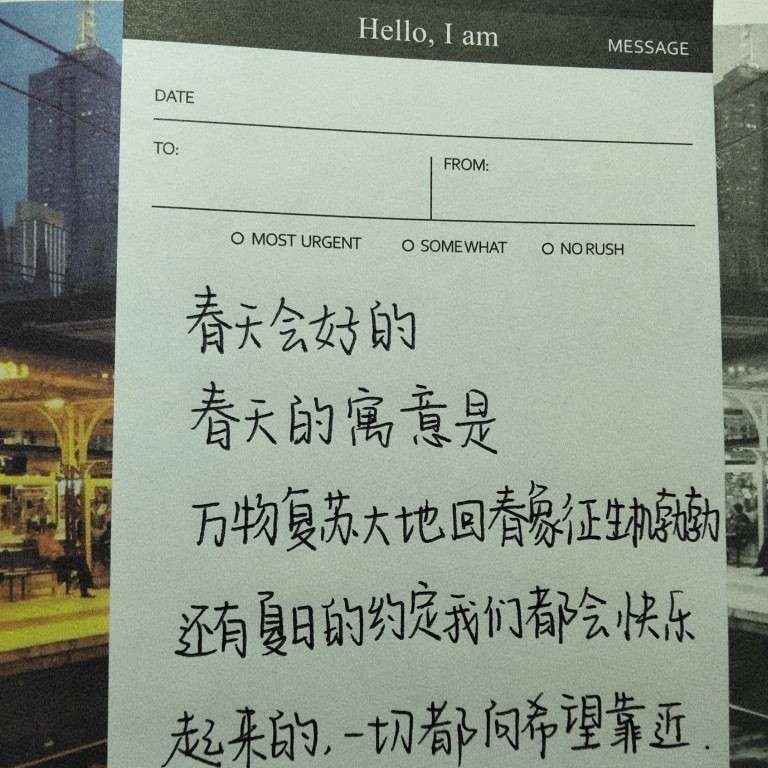 Hello, I am
MESSAGE
DATE
TO:
FROM:
MOST URGENT
SOMEWHAT
NO RUSH
春天会好的
春天的寓意是
万物复苏大地回春象征生机勃勃
还有夏日的约定我们都会快乐
起来的,一切都向希望靠近.